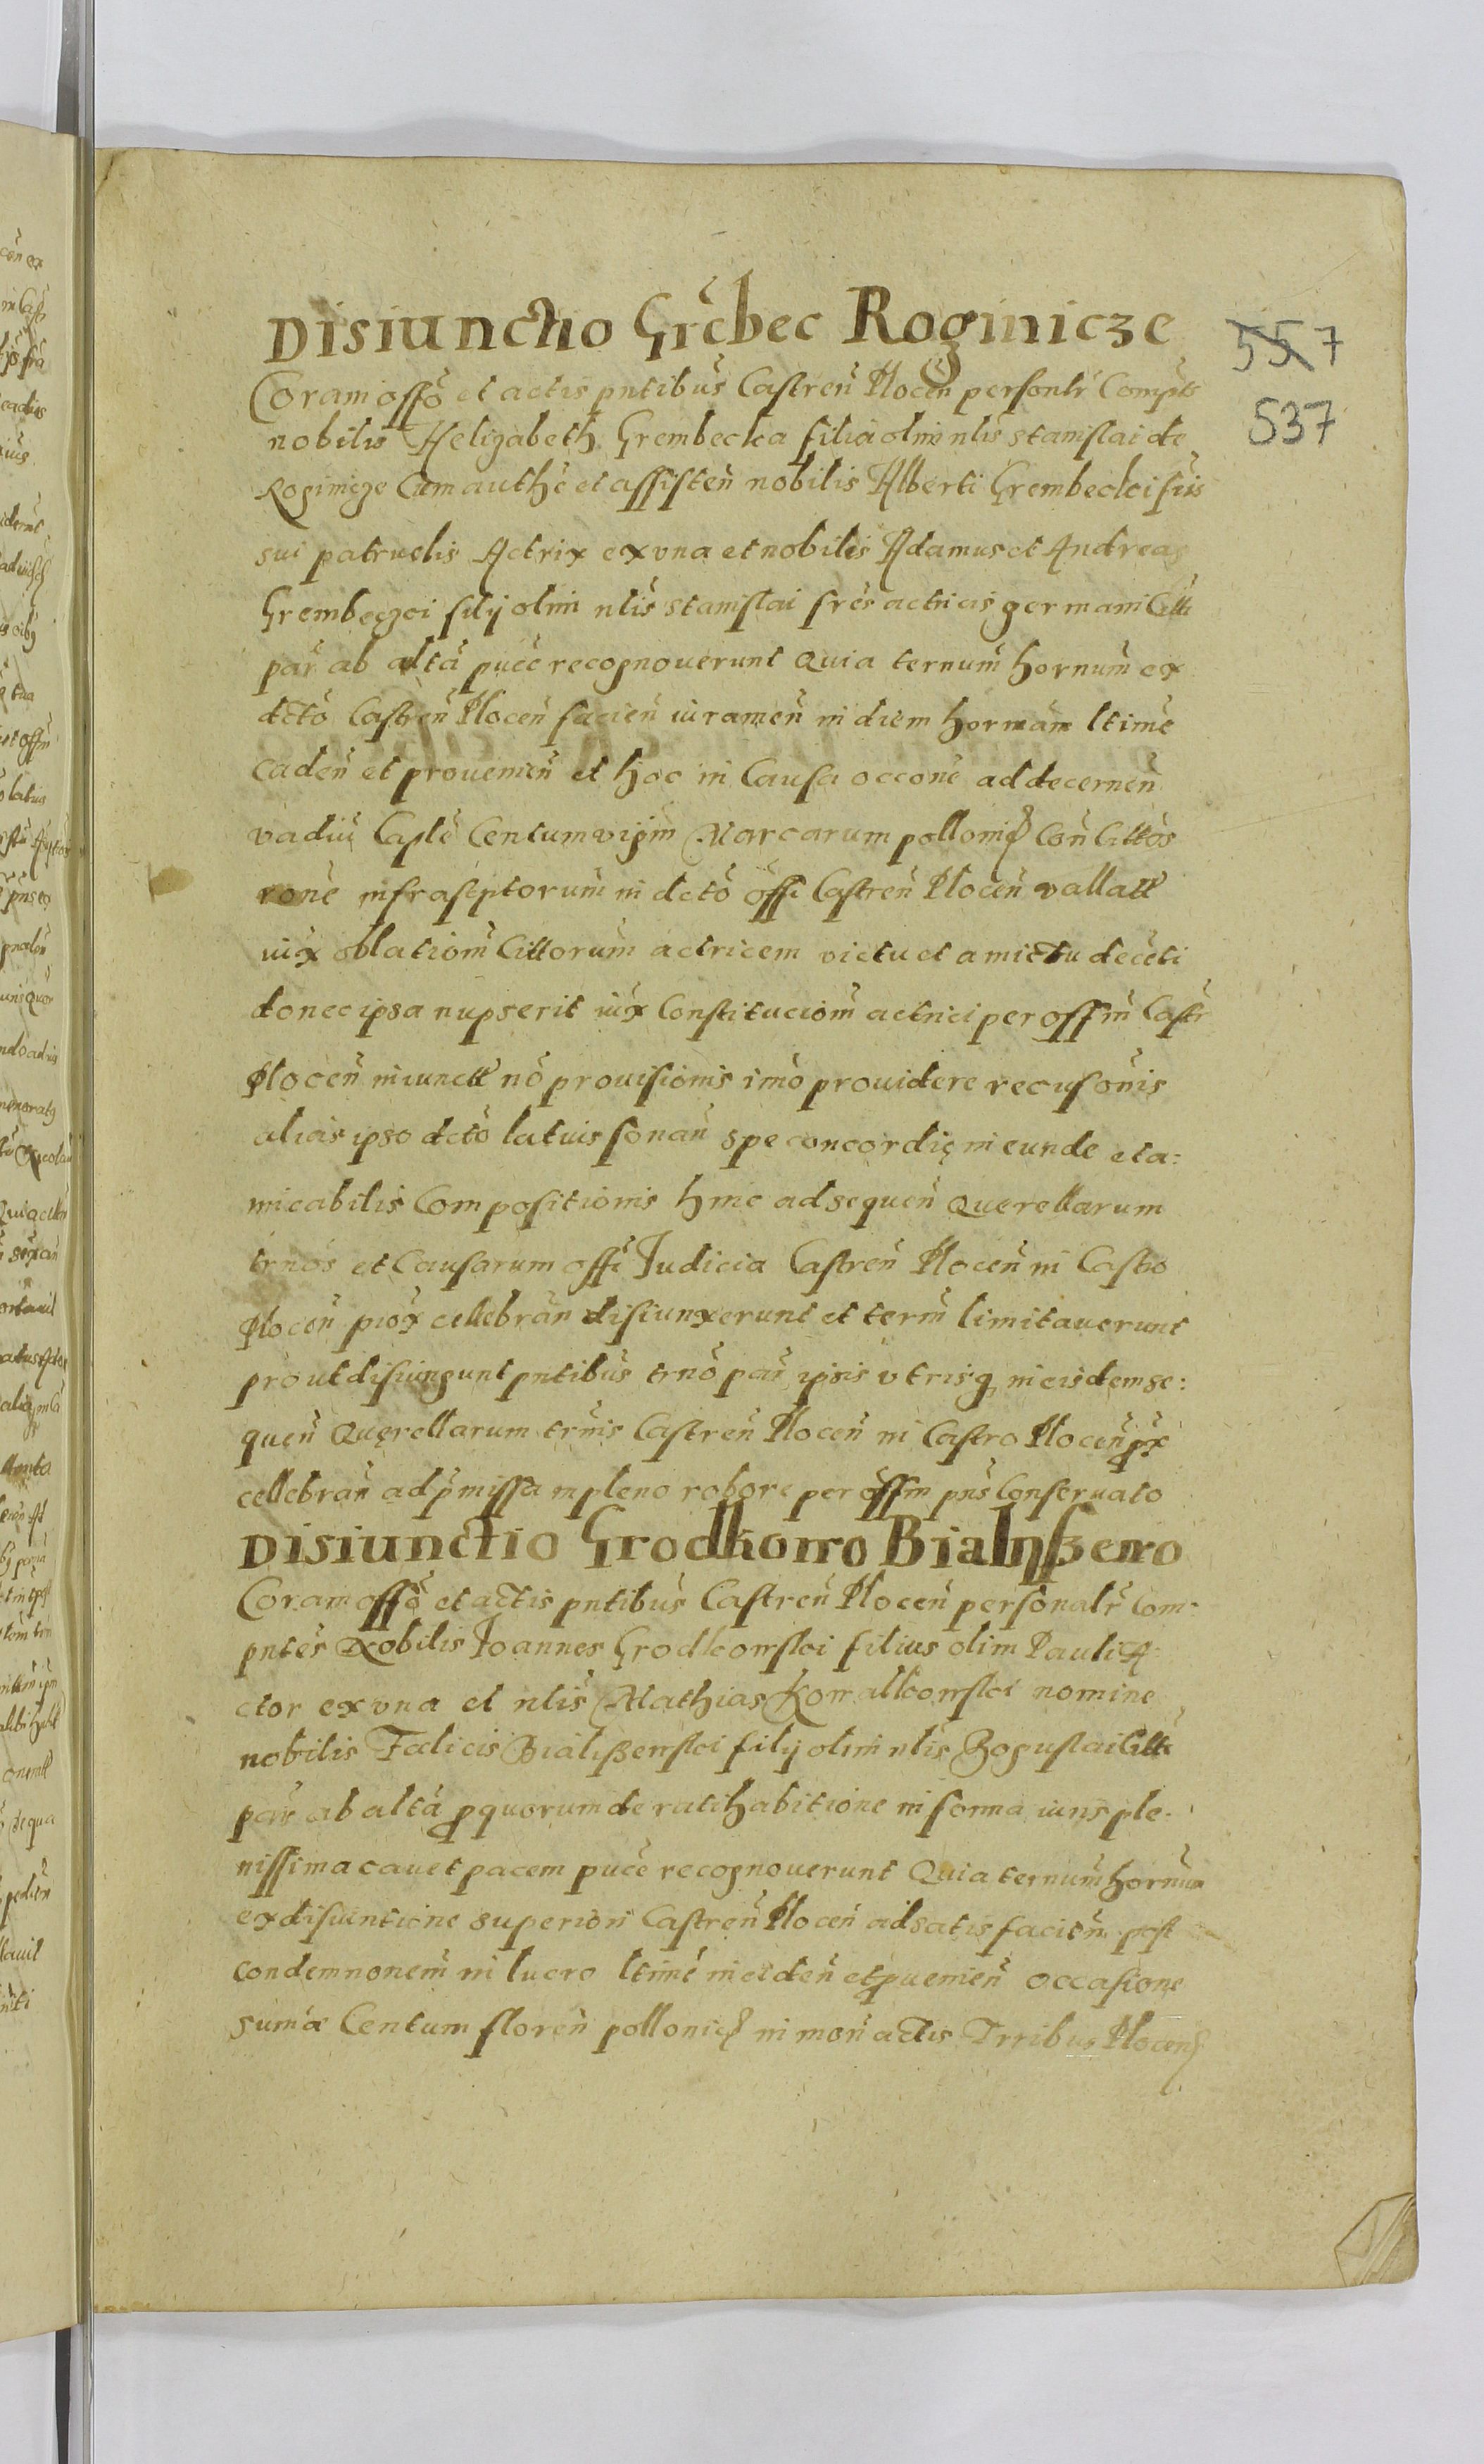 Disiunctio Grĕbec Roginicze
557
537
Coram offo et actis pntibus Castren Plocen personlr Compts
nobilis Helizabeth Grembecka filia olim nlis Stanislai de
Roginicze Cum authe et assisten nobilis Alberti Grembecki fris
sui patruelis Actrix ex vna et nobiles Adamus et Andreas
Grembeczci filij olim nlis Stanislai fres actricis germani Citti
par ab alta puce recognouerunt Quia ternum hornum ex
dcto Castren Plocen facien iuramen in diem hornam ltime
caden et prouenien et hoc in Causa occone ad decernen
vadiu Caple Centum vigin Marcarum pollonic Con Cittos
rone infrascptorum in dcto offi Castren Plocen vallatt
iux oblationm Cittorum actricem victu et amictu deceti
donec ipsa nupserit iux Constitucionm actrici per offm Castr
Plocen iniunctt no prouisionis imo prouidere recusonis
alias ipso dcto latuis sonan spe concordię ineunde et a:
micabilis Compositionis hinc ad sequen Querellarum
trnos et Causarum offi Judicia Castren Plocen in Castro
Plocen prox cellebran disiunxerunt et term limitauerunt
prout disiungunt pntibus trno par ipsis vtrisq in eisdem se:
quen Quęrellarum trmis Castren Plocen in Castro Plocen px
cellebran ad pmissa in pleno robore per offm pns Conseruato
Disiunctio Grodkowo Bialyszewo
Coram offo et actis pntibus Castren Plocen personalr Com-
pntes Nobilis Joannes Grodkowski filius olim Pauli A-
ctor ex vna et nlis Mathias Kowalkowski nomine
nobilis Fælicis Bialiszewski filij olim nlis Boguslai Citti
par ab alta p quorum de ratihabitione in forma iuris ple-
nissima cauet pacem puce recognouerunt Quia ternum hornum
ex disiuntione superiori Castren Plocen ad satisfacien post
condemnonem in lucro ltime inciden et puenien occasione
sumæ Centum floren pollonic in mon actis Trribus Plocen